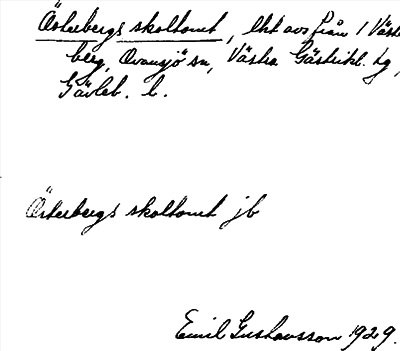 Österbergs skoltomt, lht avs från 1 Väste
berg, Ovansjö sn, Västra Gästrikl. tg,
Gävleb. l.
Österbergs skoltomt jb
Emil Gustavsson 1929.